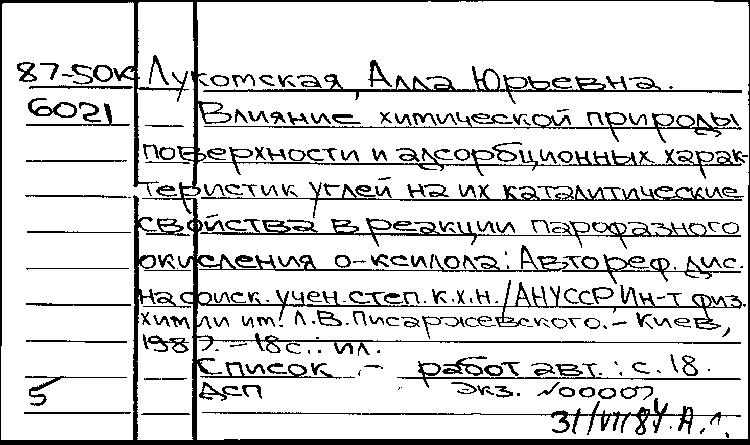 87-50к Лукотская, Алла Юрьевна.
6021 Влияние химической природы
поверхности и адсорбционных харак-
теристик углей на их каталитические
свойства в реакции парофазного
окисления о-ксилола: Автореф. дис.
на соиск. учен. степ. к.х.н. / АН УССР, Ин-т физ.
химии им. Л.В. Писаржевского. - Киев,
1987. - 18 с.: ил.
Список - работ авт.: с. 18.
5 ДСП Экз. №00007
31/VII 87. А.